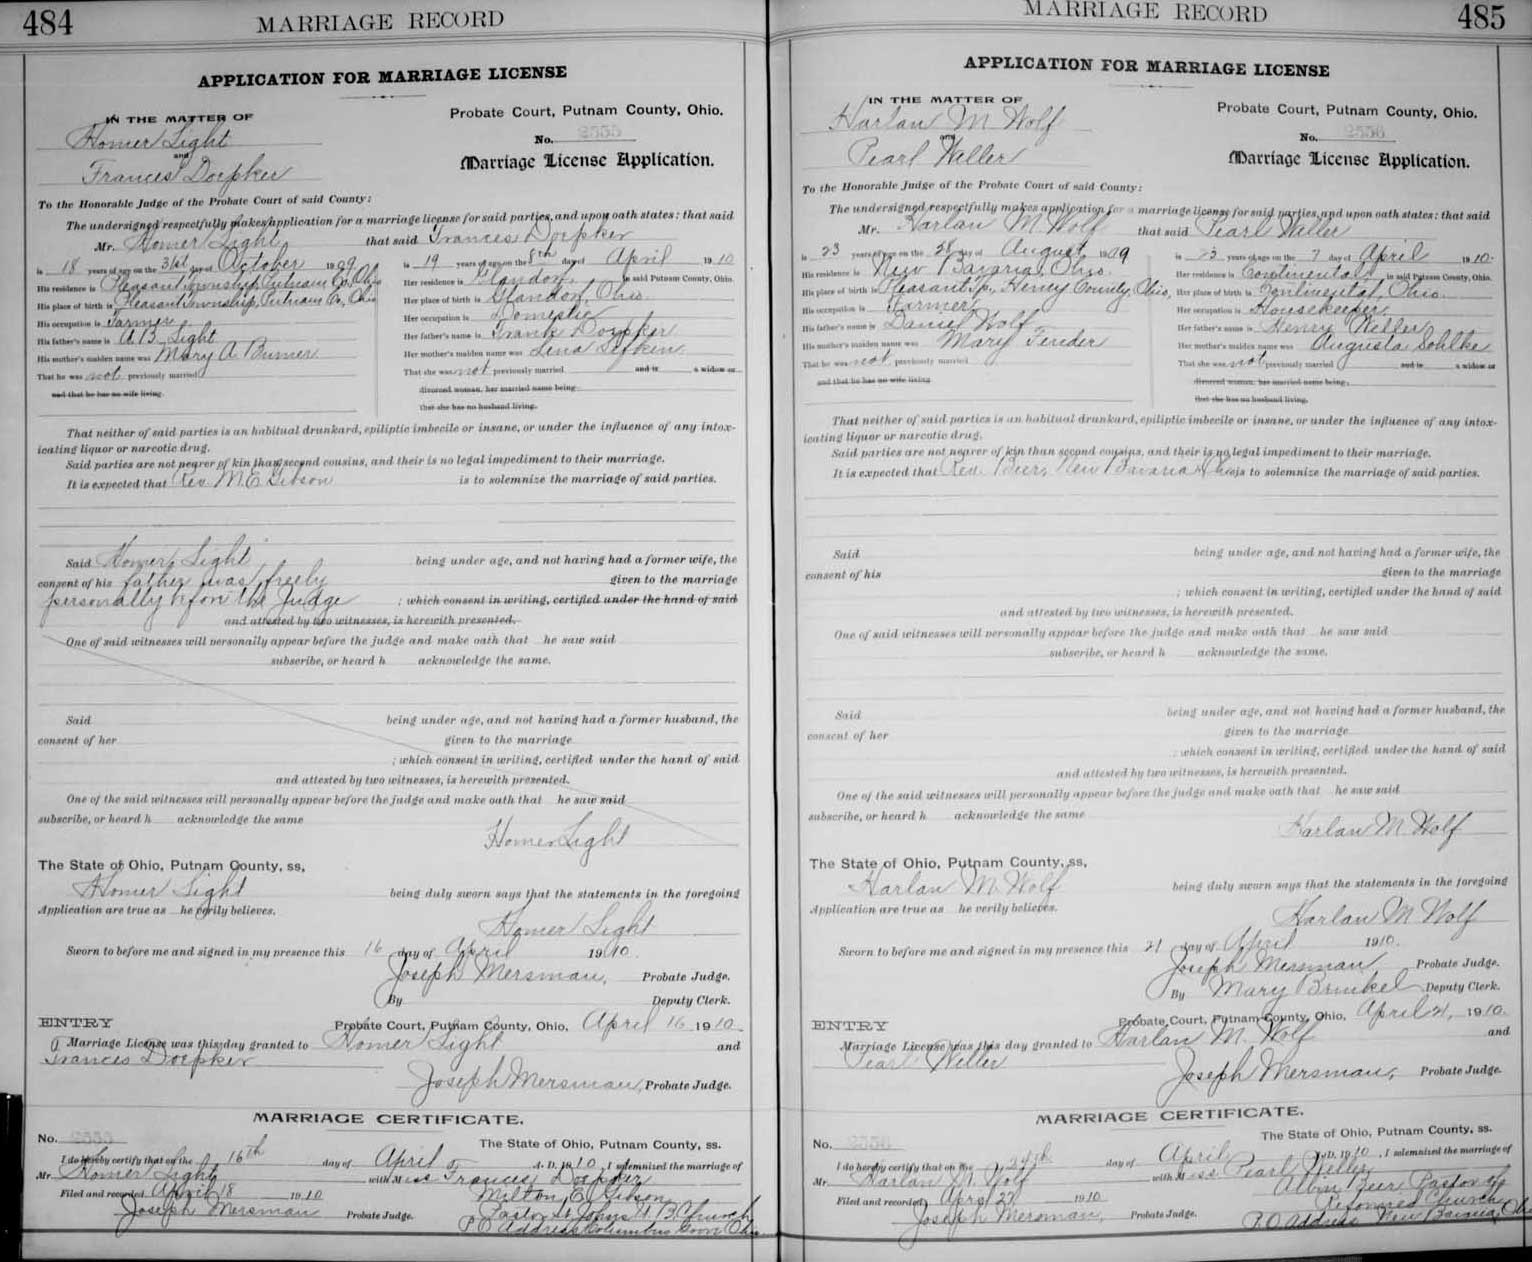 484
MARRIAGE RECORD
APPLICATION FOR MARRIAGE LICENSE
IN THE MATTER OF
Homer Light
and
Frances Doepker
Probate Court, Putnam County, Ohio.
No. 2555
Marriage License Application.
To the Honorable Judge of the Probate Court of said County:
The undersigned respectfully makes application for a marriage license for said parties, and upon oath states: that said
Mr. Homer Light that said Frances Doepker
is 18 years of age on the 31st day of October 1909
His residence is Pleasant Township, Putnam Co, Ohio
His place of birth is Pleasant township, Putnam Co, Ohio
His occupation is Farmer
His father's name is A.B. Light
His mother's maiden name was Mary A
That he was not previously married
and that he has no wife living.
is 19 years of age on the 8th day of April 1910
Her residence is Glandorf, in said Putnam County, Ohio.
Her place of birth is Glandorf, Ohio.
Her occupation is Domestic
Her father's name is Frank Doepker
Her mother's maiden name was Lena
That she was not previously married and is a widow or
divorced woman, her married name being
That she has no husband living.
That neither of said parties is an habitual drunkard, epiliptic imbecile or insane, or under the influence of any intox-
icating liquor or narcotic drug.
Said parties are not nearer of kin than second cousins, and their is no legal impediment to their marriage.
It is expected that Rev M.E. Gibson is to solemnize the marriage of said parties.
Said Homer Light being under age, and not having had a former wife, the
consent of his father was freely given to the marriage
personally before the Judge ; which consent in writing, certified under the hand of said
and attested by two witnesses, is herewith presented.
One of said witnesses will personally appear before the judge and make oath that he saw said
subscribe, or heard h acknowledge the same.
Said being under age, and not having had a former husband, the
consent of her given to the marriage
; which consent in writing, certified under the hand of said
and attested by two witnesses, is herewith presented.
One of the said witnesses will personally appear before the judge and make oath that he saw said
subscribe, or heard h acknowledge the same
Homer Light
The State of Ohio, Putnam County, ss,
Homer Light being duly sworn says that the statements in the foregoing
Application are true as he verily believes.
Homer Light
Sworn to before me and signed in my presence this 16 day of April 1910.
Joseph Mersman, Probate Judge.
By Deputy Clerk.
ENTRY
Probate Court, Putnam County, Ohio, April 16 1910.
Marriage License was this day granted to Homer Light and
Frances Doepker
Joseph Mersman, Probate Judge.
MARRIAGE CERTIFICATE.
No. 2555
The State of Ohio, Putnam County, ss.
I do hereby certify that on the 16th day of April A. D. 1910, I solemnized the marriage of
Mr Homer Light with Miss Frances Doepker
Filed and recorded April 18 1910
Milton E. Gibson
Joseph Mersman Probate Judge.
Pastor St Johns U.B. Church
P.O. Address Columbus Grove Ohio
MARRIAGE RECORD
485
APPLICATION FOR MARRIAGE LICENSE
IN THE MATTER OF
Harlan M Wolf
and
Pearl Weller
Probate Court, Putnam County, Ohio.
No. 2556
Marriage License Application.
To the Honorable Judge of the Probate Court of said County:
The undersigned respectfully makes application for a marriage license for said parties, and upon oath states: that said
Mr. Harlan M. Wolf that said Pearl Weller
is 23 years of age on the 28 day of August 1909
His residence is New Bavaria, Ohio.
His place of birth is Pleasant Tp., Henry County, Ohio,
His occupation is Farmer
His father's name is Daniel Wolf
His mother's maiden name was Mary
That he was not previously married
and that he has no wife living
is 23 years of age on the 7 day of April 1910.
Her residence is Continental, in said Putnam County, Ohio.
Her place of birth is Continental, Ohio.
Her occupation is Housekeeper
Her father's name is Henry Weller
Her mother's maiden name was Augusta Sohlke
That she was not previously married and is a widow or
divorced woman, her married name being,
that she has no husband living.
That neither of said parties is an habitual drunkard, epiliptic imbecile or insane, or under the influence of any intox-
icating liquor or narcotic drug.
Said parties are not nearer of kin than second cousins, and their is no legal impediment to their marriage.
It is expected that Rev. Beer, New Bavaria, Ohio is to solemnize the marriage of said parties.
Said being under age, and not having had a former wife, the
consent of his given to the marriage
; which consent in writing, certified under the hand of said
and attested by two witnesses, is herewith presented.
One of said witnesses will personally appear before the judge and make oath that he saw said
subscribe, or heard h acknowledge the same.
Said being under age, and not having had a former husband, the
consent of her given to the marriage
; which consent in writing, certified under the hand of said
and attested by two witnesses, is herewith presented.
One of the said witnesses will personally appear before the judge and make oath that he saw said
subscribe, or heard h acknowledge the same.
Harlan M. Wolf
The State of Ohio, Putnam County, ss,
Harlan M. Wolf being duly sworn says that the statements in the foregoing
Application are true as he verily believes.
Harlan M Wolf
Sworn to before me and signed in my presence this 21 day of April 1910.
Joseph Mersman Probate Judge.
By Mary Brinkel Deputy Clerk.
ENTRY
Probate Court, Putnam County, Ohio, April 21, 1910.
Marriage License was this day granted to Harlan M. Wolf and
Pearl Weller
Joseph Mersman, Probate Judge.
MARRIAGE CERTIFICATE.
No. 2556
The State of Ohio, Putnam County, ss.
I do hereby certify that on the 24th day of April A.D. 1910, I solemnized the marriage of
Mr. Harlan M. Wolf with Miss Pearl Weller
Filed and recorded Apr 27 1910
Albin Beer Pastor of
Reformed Church
Joseph Mersman, Probate Judge.
P.O. Address New Bavaria, Ohio